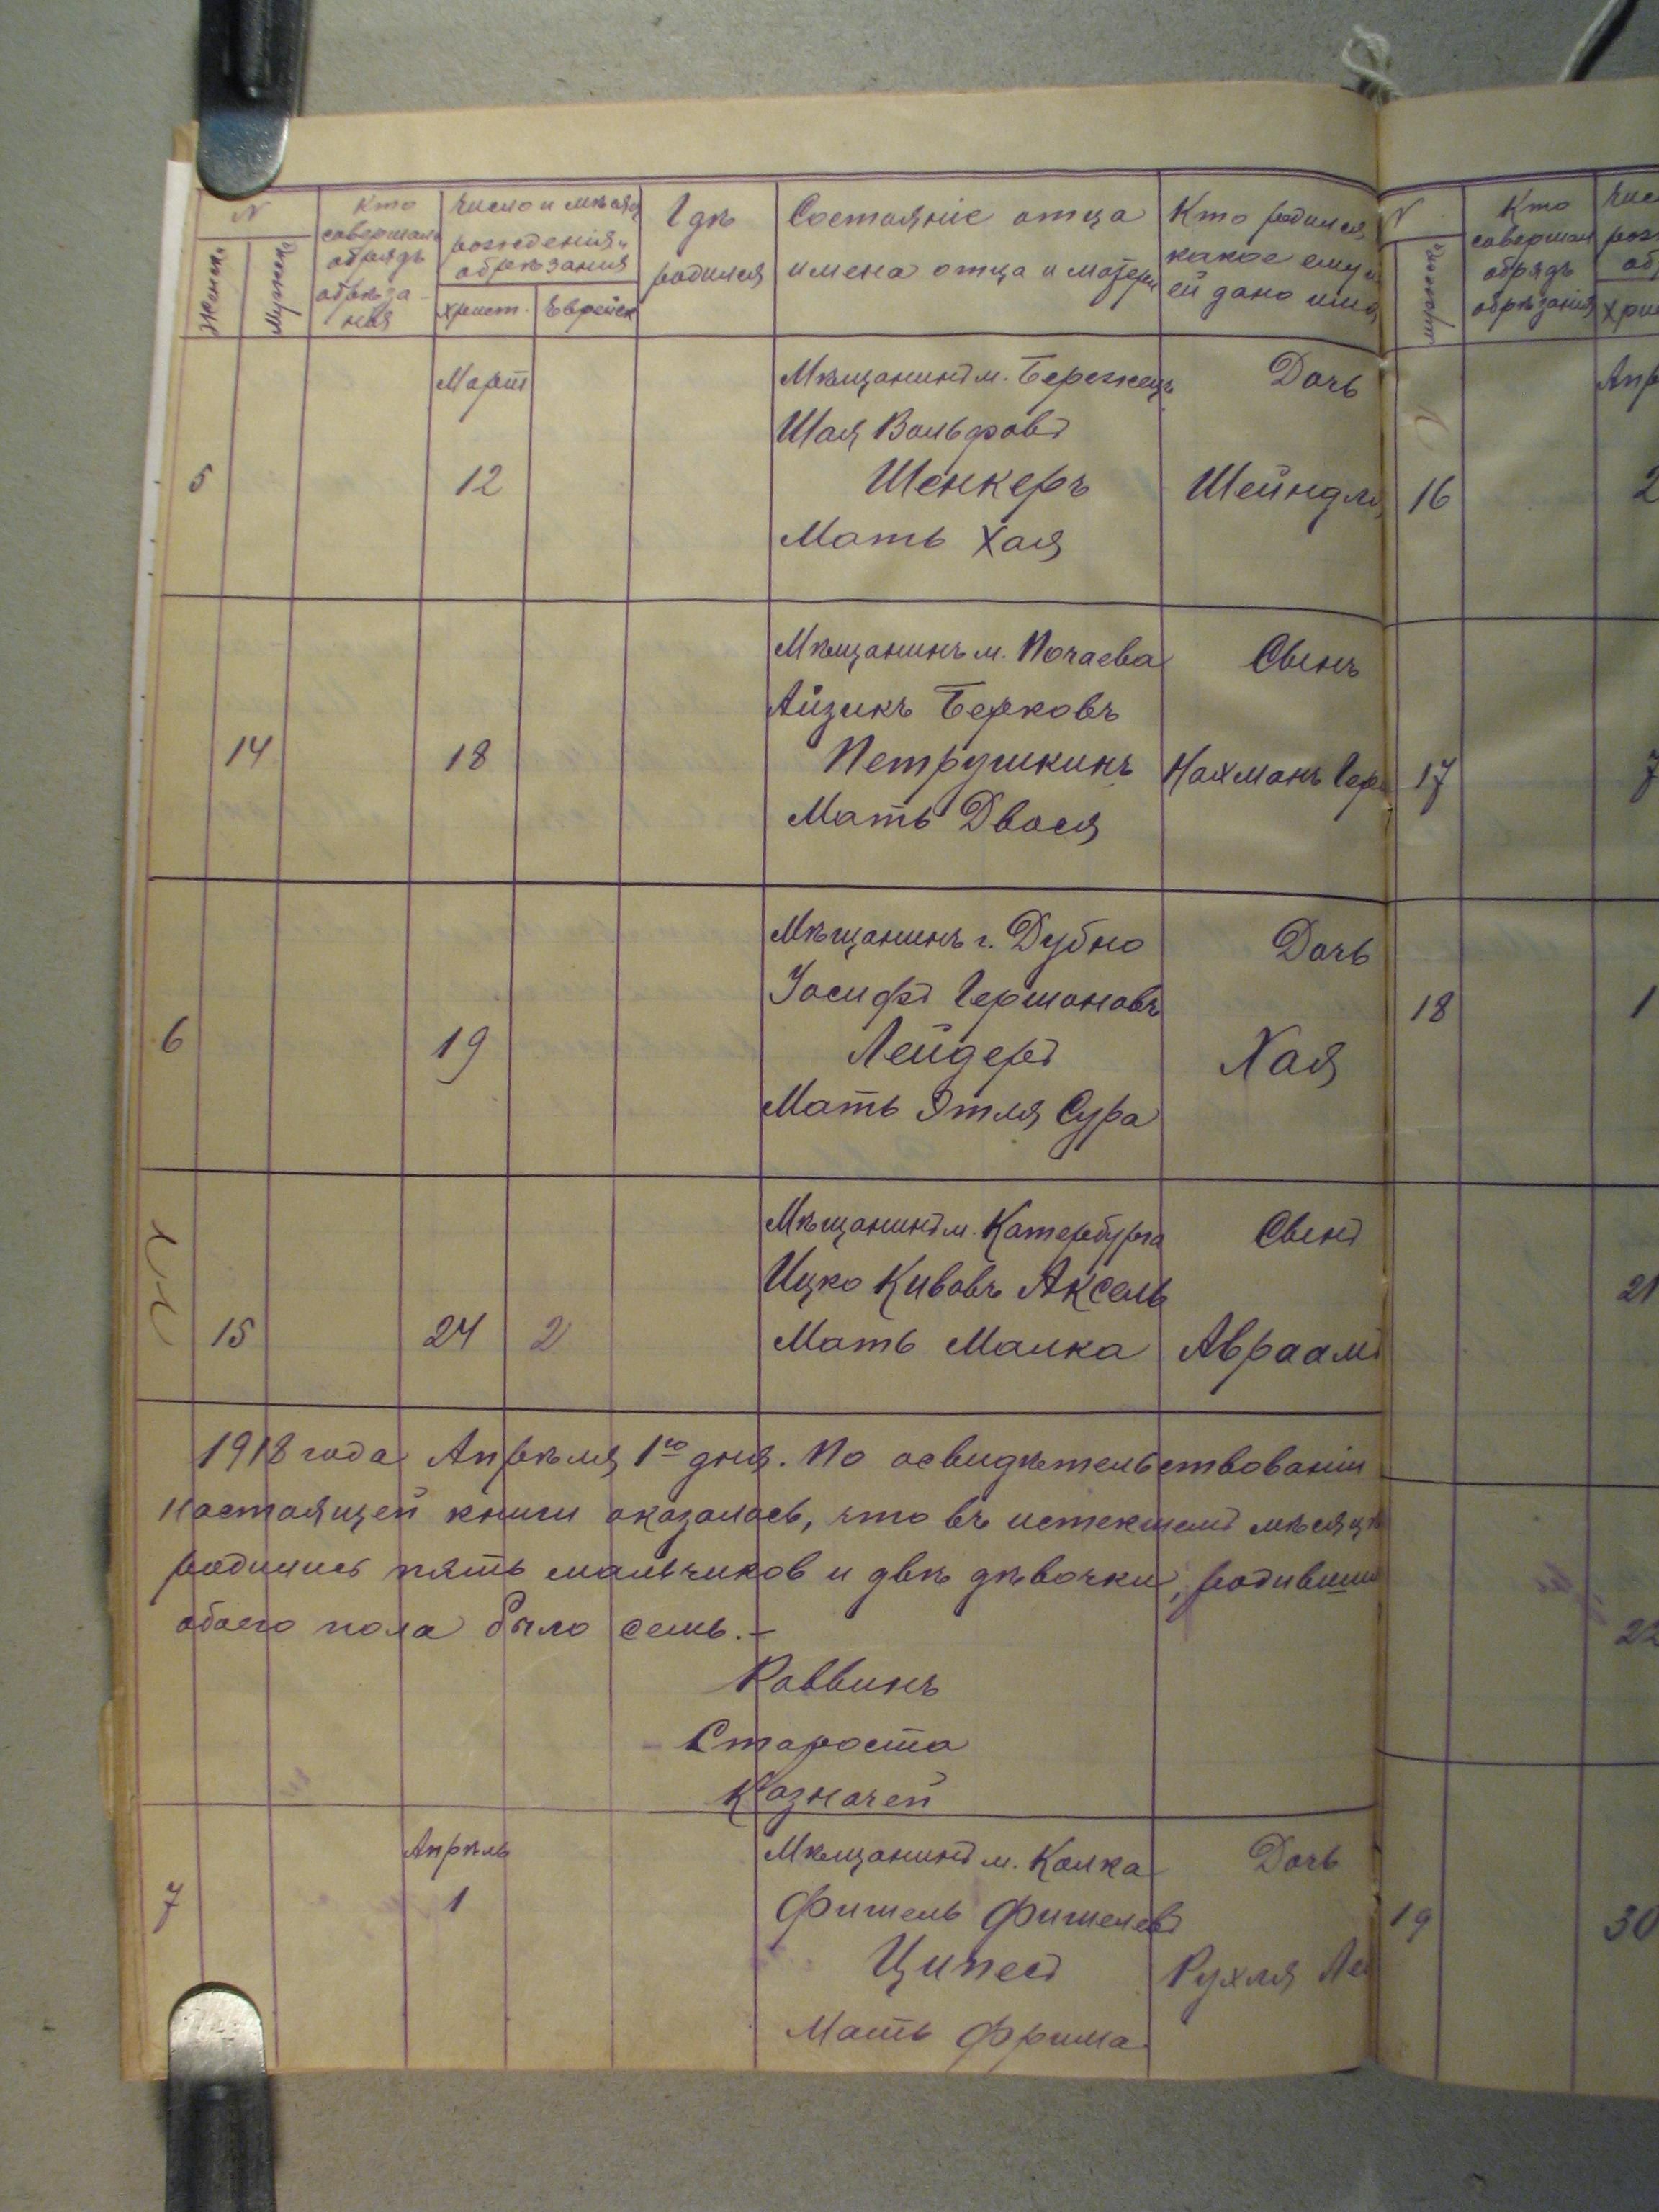 N
Женск.
Мужск.
Кто
совершал
обрядъ
обрѣза-
нія
Число и мѣсяц
рожденія и
обрѣзанія
Христ.
Еврейск
Гдѣ
родился
Состояніе отца
имена отца и матери
Кто родился
какое ему и
ей дано имя
Мартъ
Мѣщанинъ м. Бережецъ
Дочь
Шая Вольфовъ
5
12
Шенкеръ
Шейндля
Мать Хая
Мѣщанинъ м. Почаева
Сынъ
Айзикъ Берковъ
14
18
Петрушкинъ
Нахманъ Гер
Мать Двося
Мѣщанинъ г. Дубно
Дочь
Іосифъ Гершоновъ
6
19
Лейдеръ
Хая
Мать Этля Сура
Мѣщанинъ м. Катербурга
Сынъ
Ицко Кивовъ Аксель
15
24
2
Мать Малка
Авраамъ
1918 года Апрѣля 1го дня. По освидѣтельствованіи
настоящей книги оказалось, что въ истекшемъ мѣсяцѣ
родились пять мальчиков и двѣ дѣвочки, родивши
обоего пола было семь.-
Раввинъ
Староста
Казначей
Апрѣль
Мѣщанинъ м. Колка
Дочь
7
1
Фишель Фишелевъ
Ципесъ
Рухля Ле
Мать Фрима
N
мужска
Кто
совершал
обрядъ
обрѣзанія
Чис
рож
об
Хри
Апр
16
2
17
7
18
1
21
22
19
30